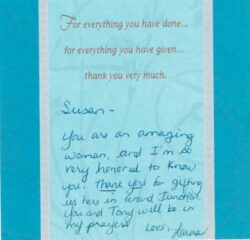 For everything you have done...
for everything you have given...
thank you very much.
Susan -
You are an amazing
woman, and I'm so
very honored to know
you. Thank you for getting
us here in Grand Junction.
You and Tony will be in
my prayers. Love,
Laura